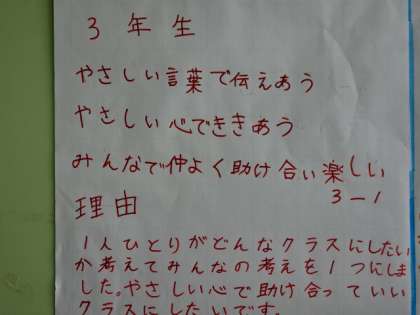 3年生
やさしい言葉で伝えあう
やさしい心でききあう
みんなで仲よく助け合い楽しい
3-1
理由
1人ひとりがどんなクラスにしたい
か考えてみんなの考えを1つにしま
した。やさしい心で助け合っていい
クラスにしたいです。